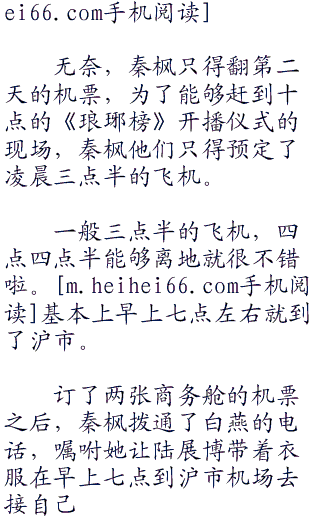 ei66.com手机阅读]
无奈，秦枫只得翻第二
天的机票，为了能够赶到十
点的《琅琊榜》开播仪式的
现场，秦枫他们只得预定了
凌晨三点半的飞机。
一般三点半的飞机，四
点四点半能够离地就很不错
啦。[m.heihei66.com手机阅
读]基本上早上七点左右就到
了沪市。
订了两张商务舱的机票
之后，秦枫拨通了白燕的电
话，嘱咐她让陆展博带着衣
服在早上七点到沪市机场去
接自己